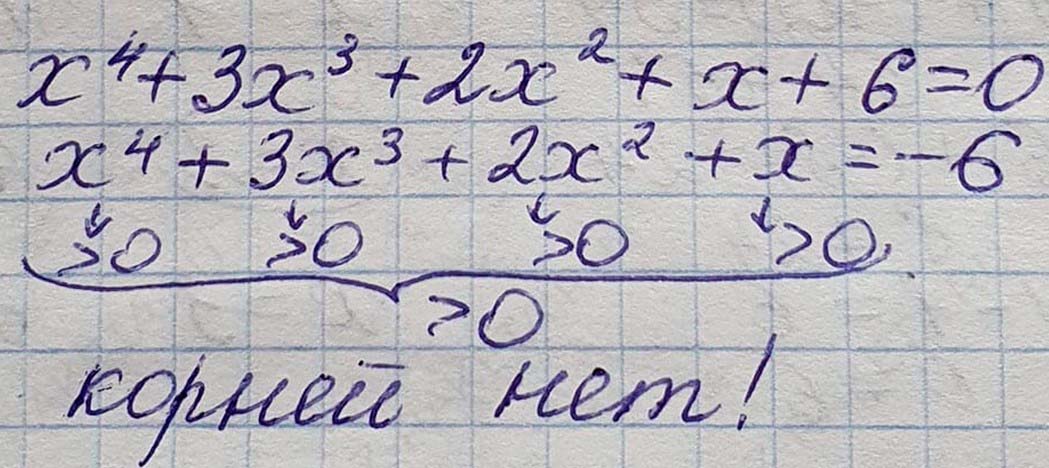 x⁴+3x³+2x²+x+6=0
x⁴+3x³+2x²+x=-6
>0 >0 >0 >0
>0
корней нет!